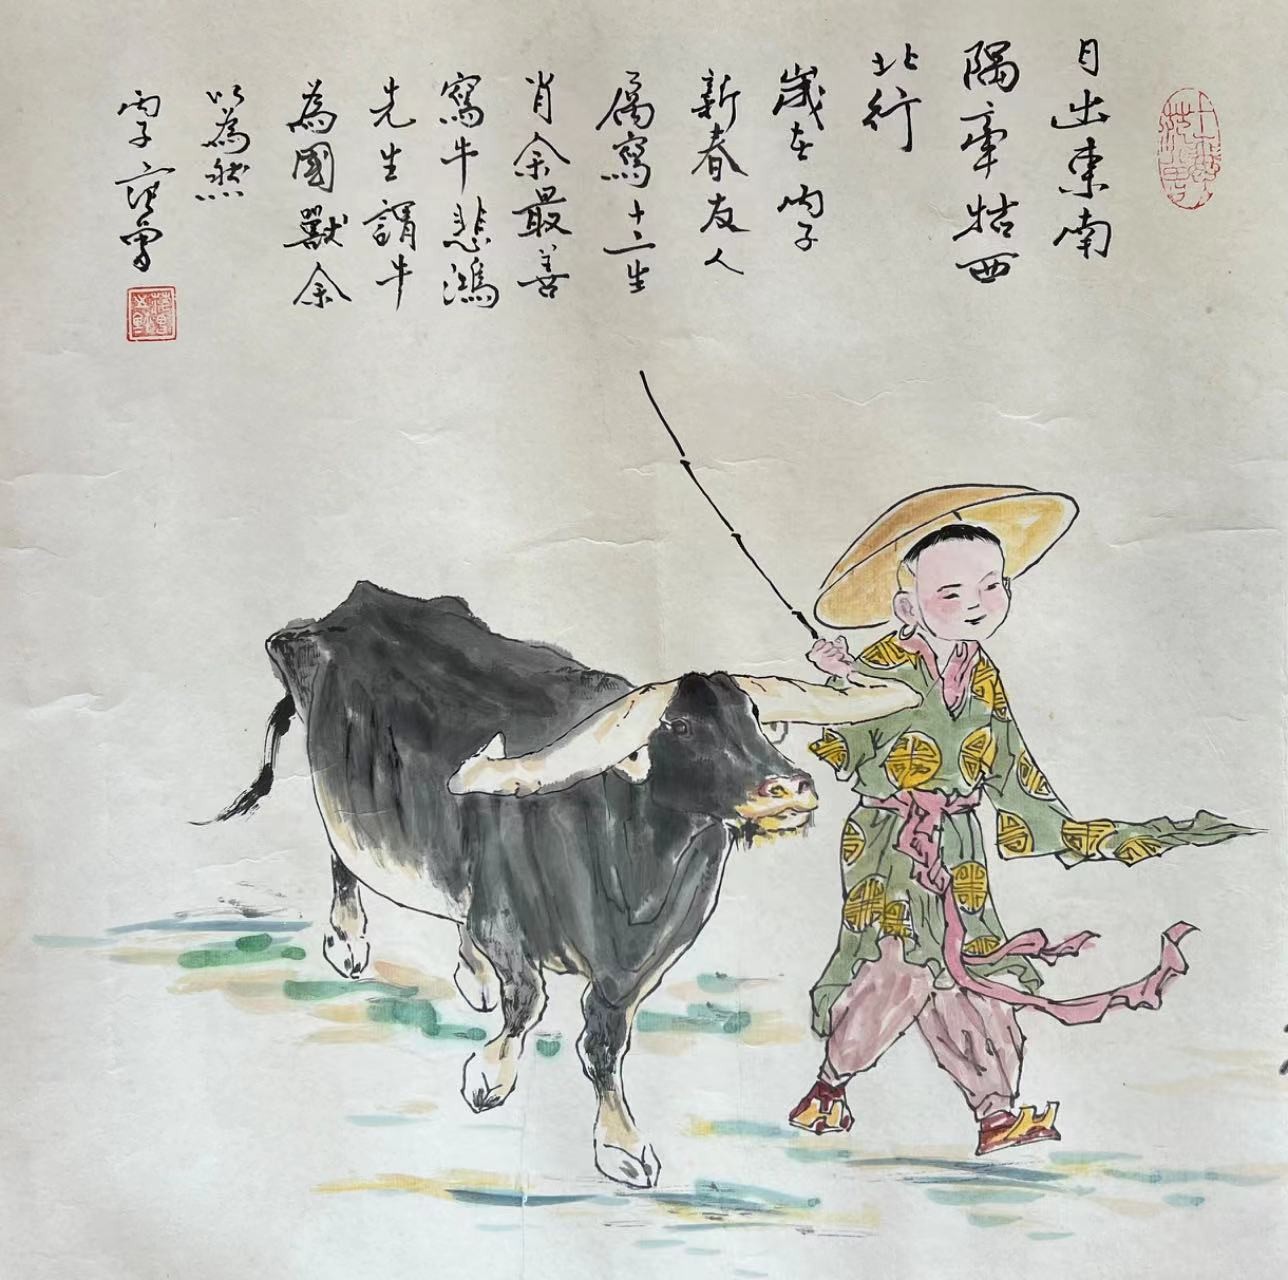 日出東南
隅牽牯西
北行
歲在丙子
新春友人
属寫十二生
肖余最善
寫牛悲鴻
先生謂牛
為國獸余
以為然
丙子范曾